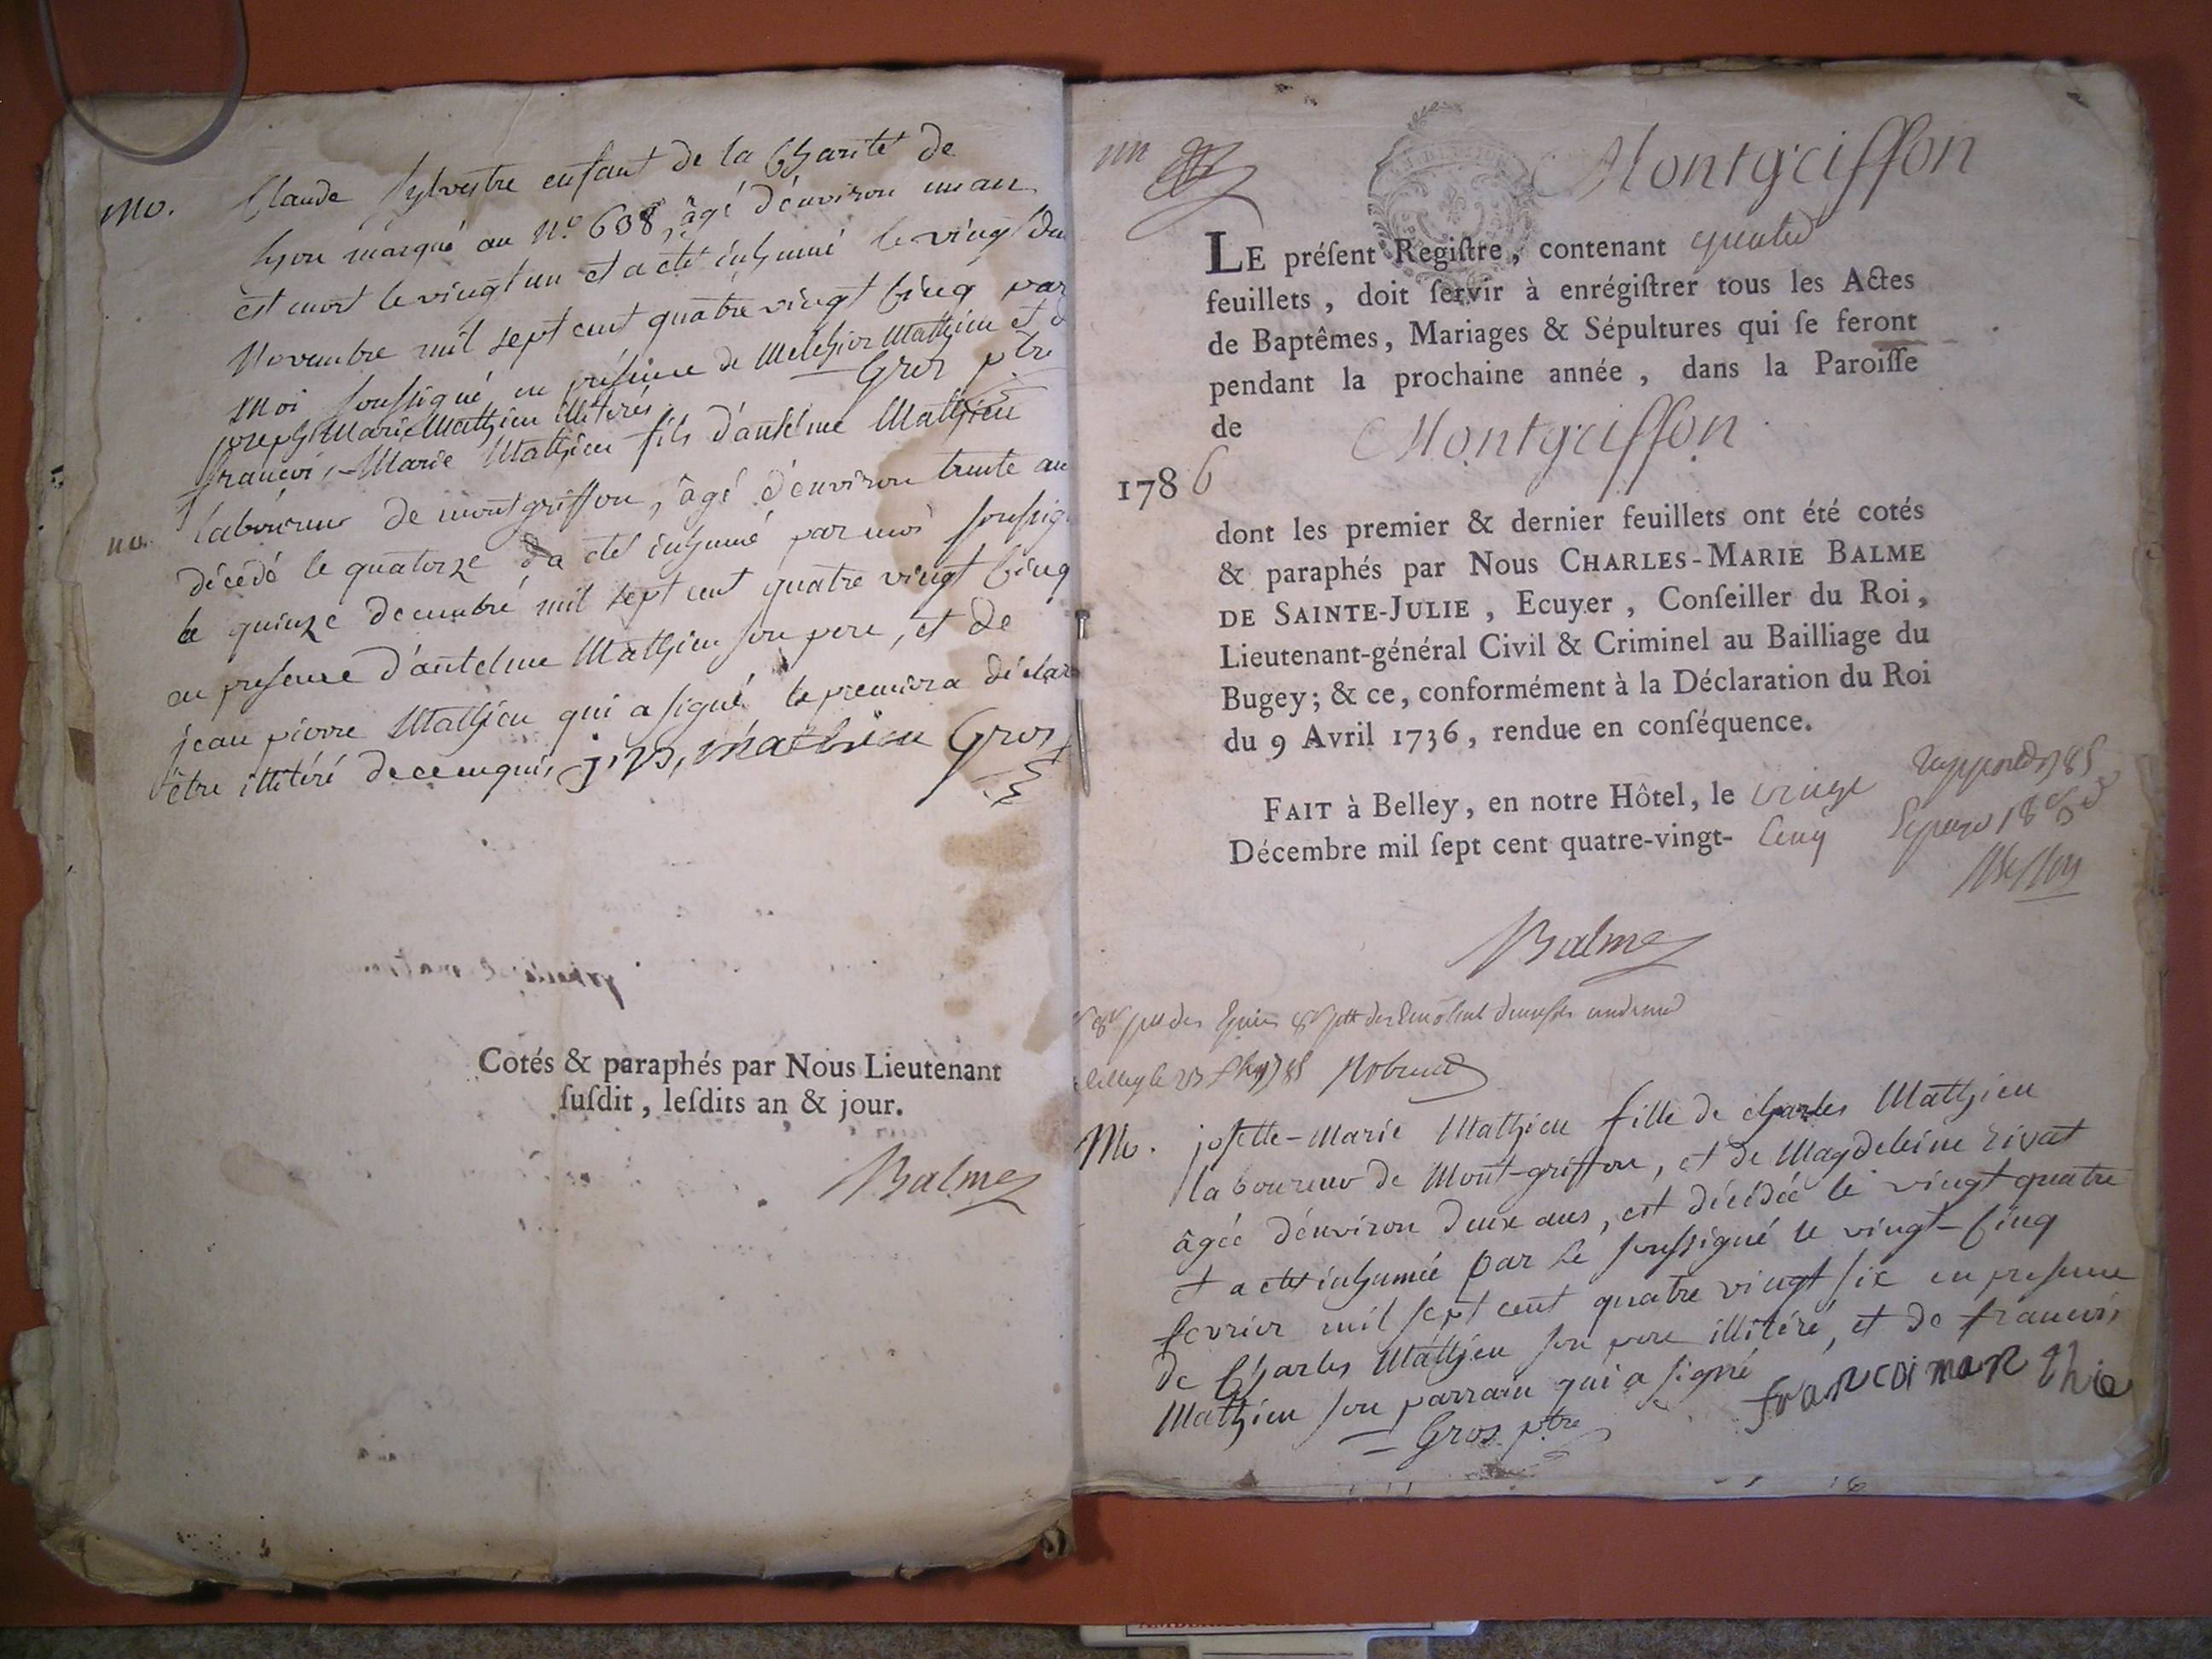 mo.
Claude Sylvestre enfant de la Charité de
Lyon marqué au N.º 608, âgé d'environ un an
est mort le vingt un et a eté inhumé le vingt
Novembre mil sept cent quatre vingt cinq par
moi soussigné en présence de Melchior Mathieu et
joseph Marie Mathieu illiterés Gros ptre
francois-Marie Mathieu fils d'antelme Mathieu
mo.
laboureur de montgriffon, âgé d'environ trente an
décédé le quatorze a eté inhumé par moi soussig
le quinze decembre mil sept cent quatre vingt cinq
en presence d'antelme Mathieu son pere, et de
jean pierre Mathieu qui a signé le premier a déclar
être illitéré de ce enquis j, p, mathieu Gros
Cotés & paraphés par Nous Lieutenant
ſuſdit, leſdits an & jour.
Balme
un
Montgriffon
LE préſent Regiſtre, contenant quatre
feuillets, doit ſervir à enrégiſtrer tous les Actes
de Baptêmes, Mariages & Sépultures qui ſe feront
pendant la prochaine année, dans la Paroiſſe
de Montgriffon
1786
dont les premier & dernier feuillets ont été cotés
& paraphés par Nous CHARLES-MARIE BALME
DE SAINTE-JULIE, Ecuyer, Conſeiller du Roi,
Lieutenant-général Civil & Criminel au Bailliage du
Bugey; & ce, conformément à la Déclaration du Roi
du 9 Avril 1736, rendue en conſéquence.
FAIT à Belley, en notre Hôtel, le vingt
Décembre mil ſept cent quatre-vingt- Cinq
Balme
Mo.
josette-Marie Mathieu fille de charles Mathieu
laboureur de Mont-griffon, et de Magdeleine rivat
âgée d'environ deux ans, est décédée le vingt-quatre
et a eté inhumée par le soussigné le vingt-cinq
fevrier mil sept cent quatre vingt six en presence
de Charles Mathieu son pere illitéré, et de francois
Mathieu son parrain qui a signé francoi mar thie
Gros ptre